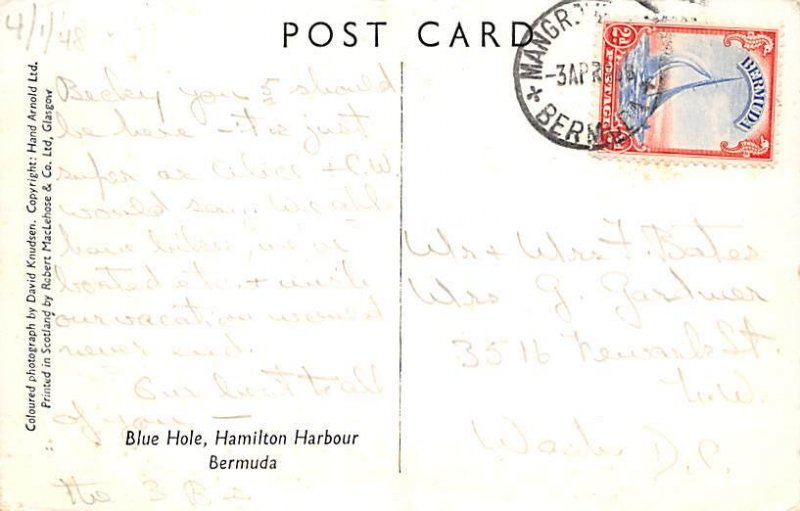 4/1/48
POST CARD
MANGR
-3APR
BERMUDA
2d
POSTAGE
BERMUDA
Coloured photograph by David Knudsen. Copyright: Hand Arnold Ltd.
Printed in Scotland by Robert MacLehose & Co. Ltd, Glasgow
Becky you 5 should
be here - it is just
super as Alice + C.W.
would say. We all
have bikes, we've
boated etc. + wish
our vacation would
never end.
Our best to all
of you -
the 3 B's
Blue Hole, Hamilton Harbour
Bermuda
Mr + Mrs F. Bates
Mrs G. Gardner
3516 Newark St.
N.W.
Wash. D.C.